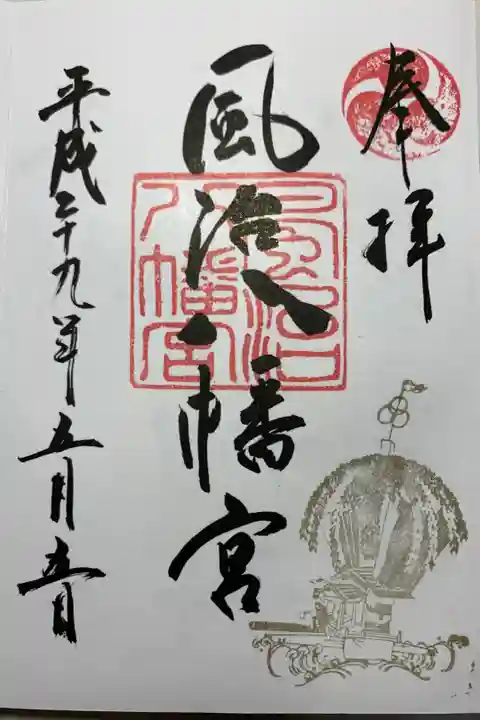 奉拝
風治八幡宮
風治八幡宮
平成二十九年五月五日